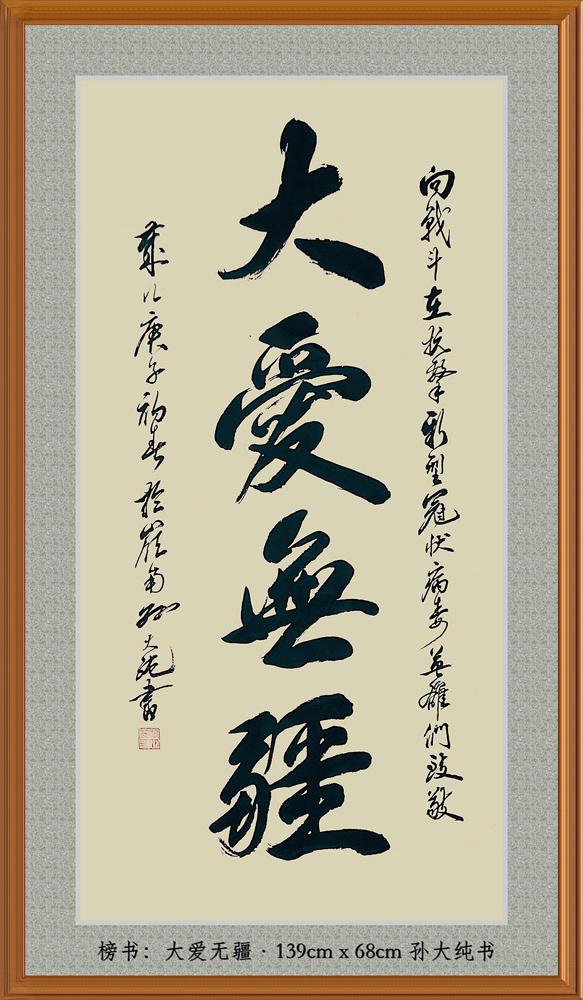 向戰斗在抗擊新型冠狀病毒英雄們致敬
大愛無疆
歲次庚子初春於嶺南孫大純書
榜书：大爱无疆 · 139cm x 68cm 孙大纯书